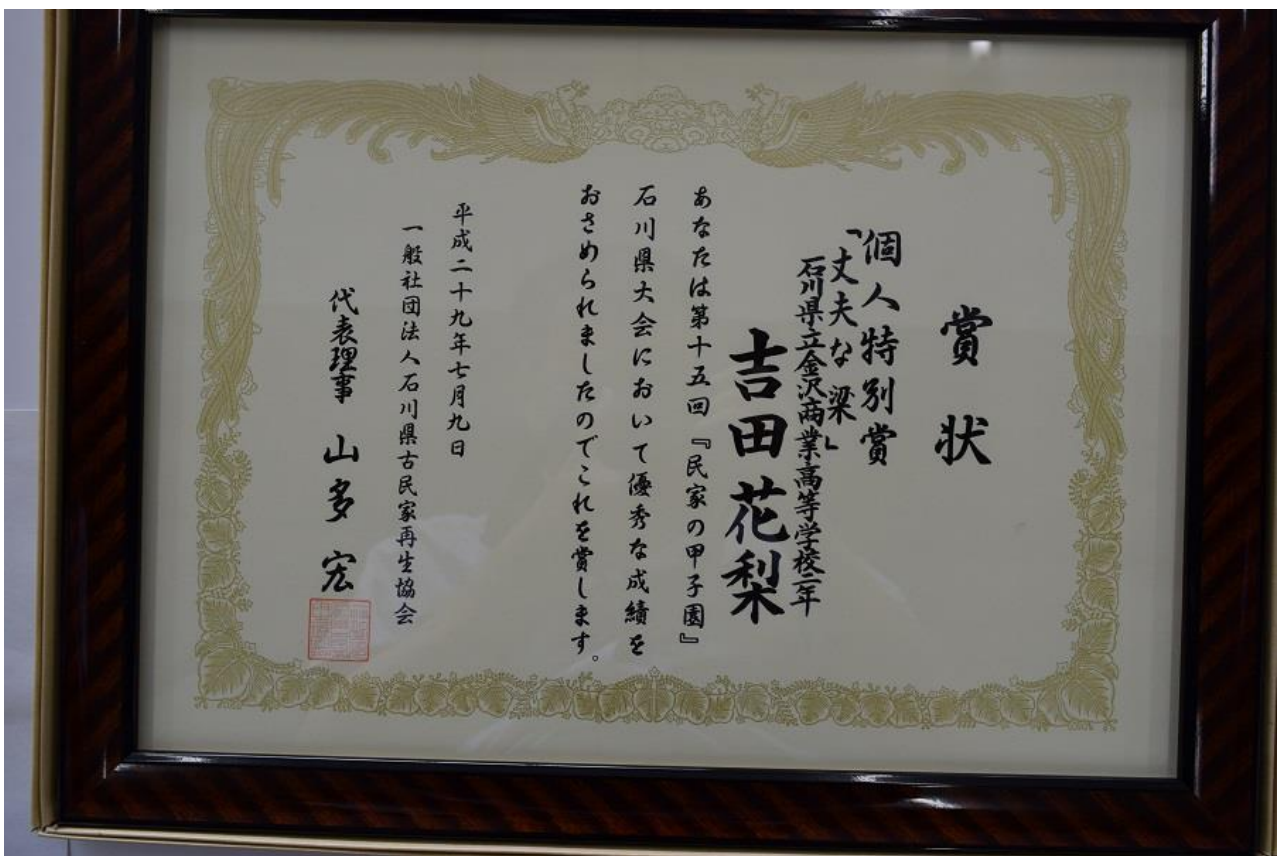 賞状
個人特別賞
「丈夫な梁」
石川県立金沢商業高等学校二年
吉田花梨
あなたは第十五回『民家の甲子園』
石川県大会において優秀な成績を
おさめられましたのでこれを賞します。
平成二十九年七月九日
一般社団法人石川県古民家再生協会
代表理事 山多宏